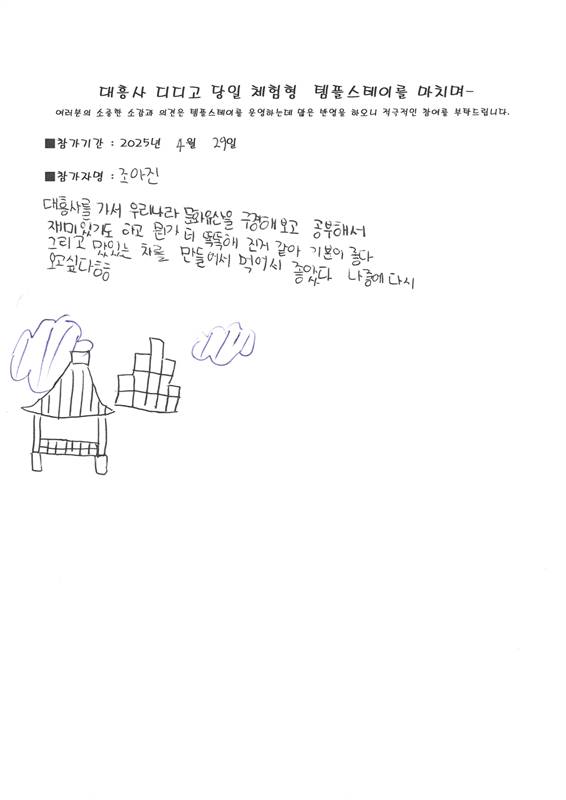 대흥사 디디고 당일 체험형 템플스테이를 마치며-
여러분의 소중한 소감과 의견은 템플스테이를 운영하는데 많은 반영을 하오니 적극적인 참여를 부탁드립니다.
■참가기간 : 2025년 4월 29일
■참가자명 : 조아진
대흥사를 가서 우리나라 문화유산을 구경해보고 공부해서
재미있기도 하고 뭔가 더 똑똑해 진거 같아 기분이 좋다
그리고 맛있는 차를 만들어서 먹어서 좋았다 나중에 다시
오고싶다